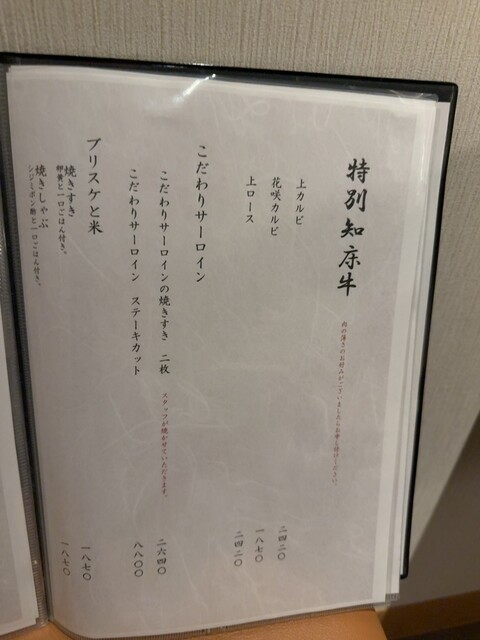 特別知床牛
肉の薄さのお好みがございましたらお申し付けください。
上カルビ 二四二〇
花咲カルビ 一八七〇
上ロース 二四二〇
こだわりサーロイン
こだわりサーロインの焼きすき 二枚 二六四〇
スタッフが焼かせていただきます。
こだわりサーロイン ステーキカット 八八〇〇
ブリスケと米
焼きすき 一八七〇
卵黄と一口ごはん付き。
焼きしゃぶ 一八七〇
シジミポン酢と一口ごはん付き。